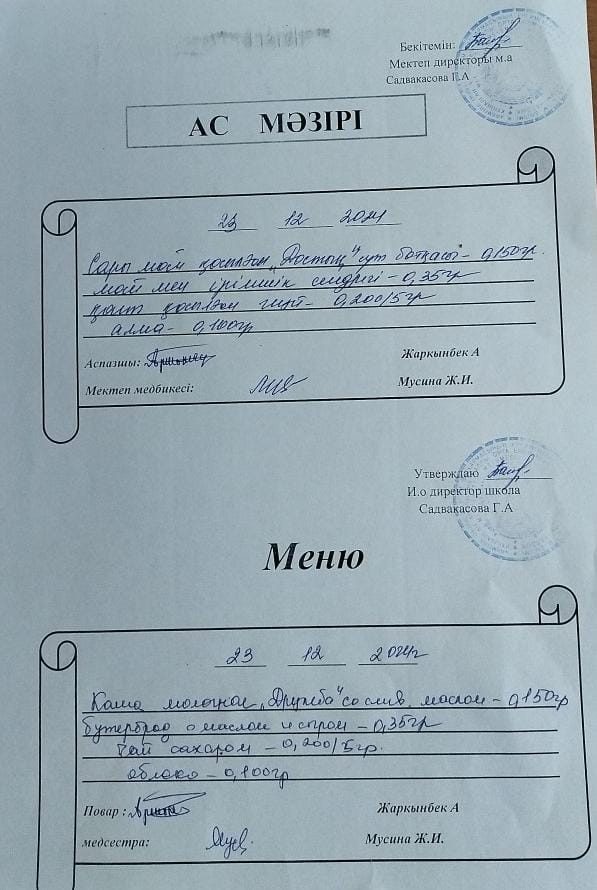 Бекітемін:
Мектеп директоры м.а
Садвакасова Г.А
АС МӘЗІРІ
23 12 2024
Сары май қосылған „Достық" сүт ботқасы - 0,150гр.
май мен ірімшік сендвігі - 0,35гр
қант қосылған - 0,200/5гр
алма - 0,100гр
Аспазшы: Жаркынбек А
Мектеп медбикесі: Мусина Ж.И.
Утверждаю
И.о директор школа
Садвакасова Г.А
Меню
23 12 2024г
Каша молочная „Дружба" со слив. маслом - 0,150гр
бутерброд с маслом и сыром - 0,35гр
Чай сахаром - 0,200/5гр.
яблоко - 0,100гр
Повар : Жаркынбек А
медсестра: Мусина Ж.И.